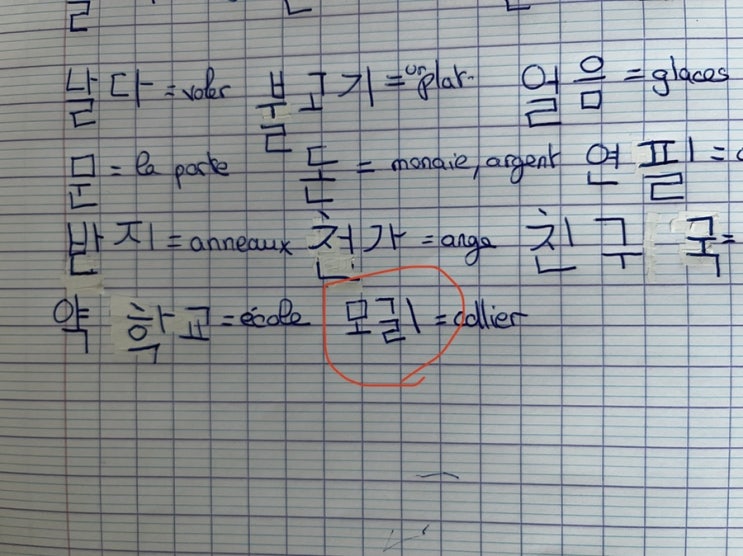 날다 = voler 불고기 = un plat. 얼음 = glaces
문 = la porte 돈 = monaie, argent 연필 =
반지 = anneaux 천가 = ange 친구 국 =
약 학교 = école 모길 = collier